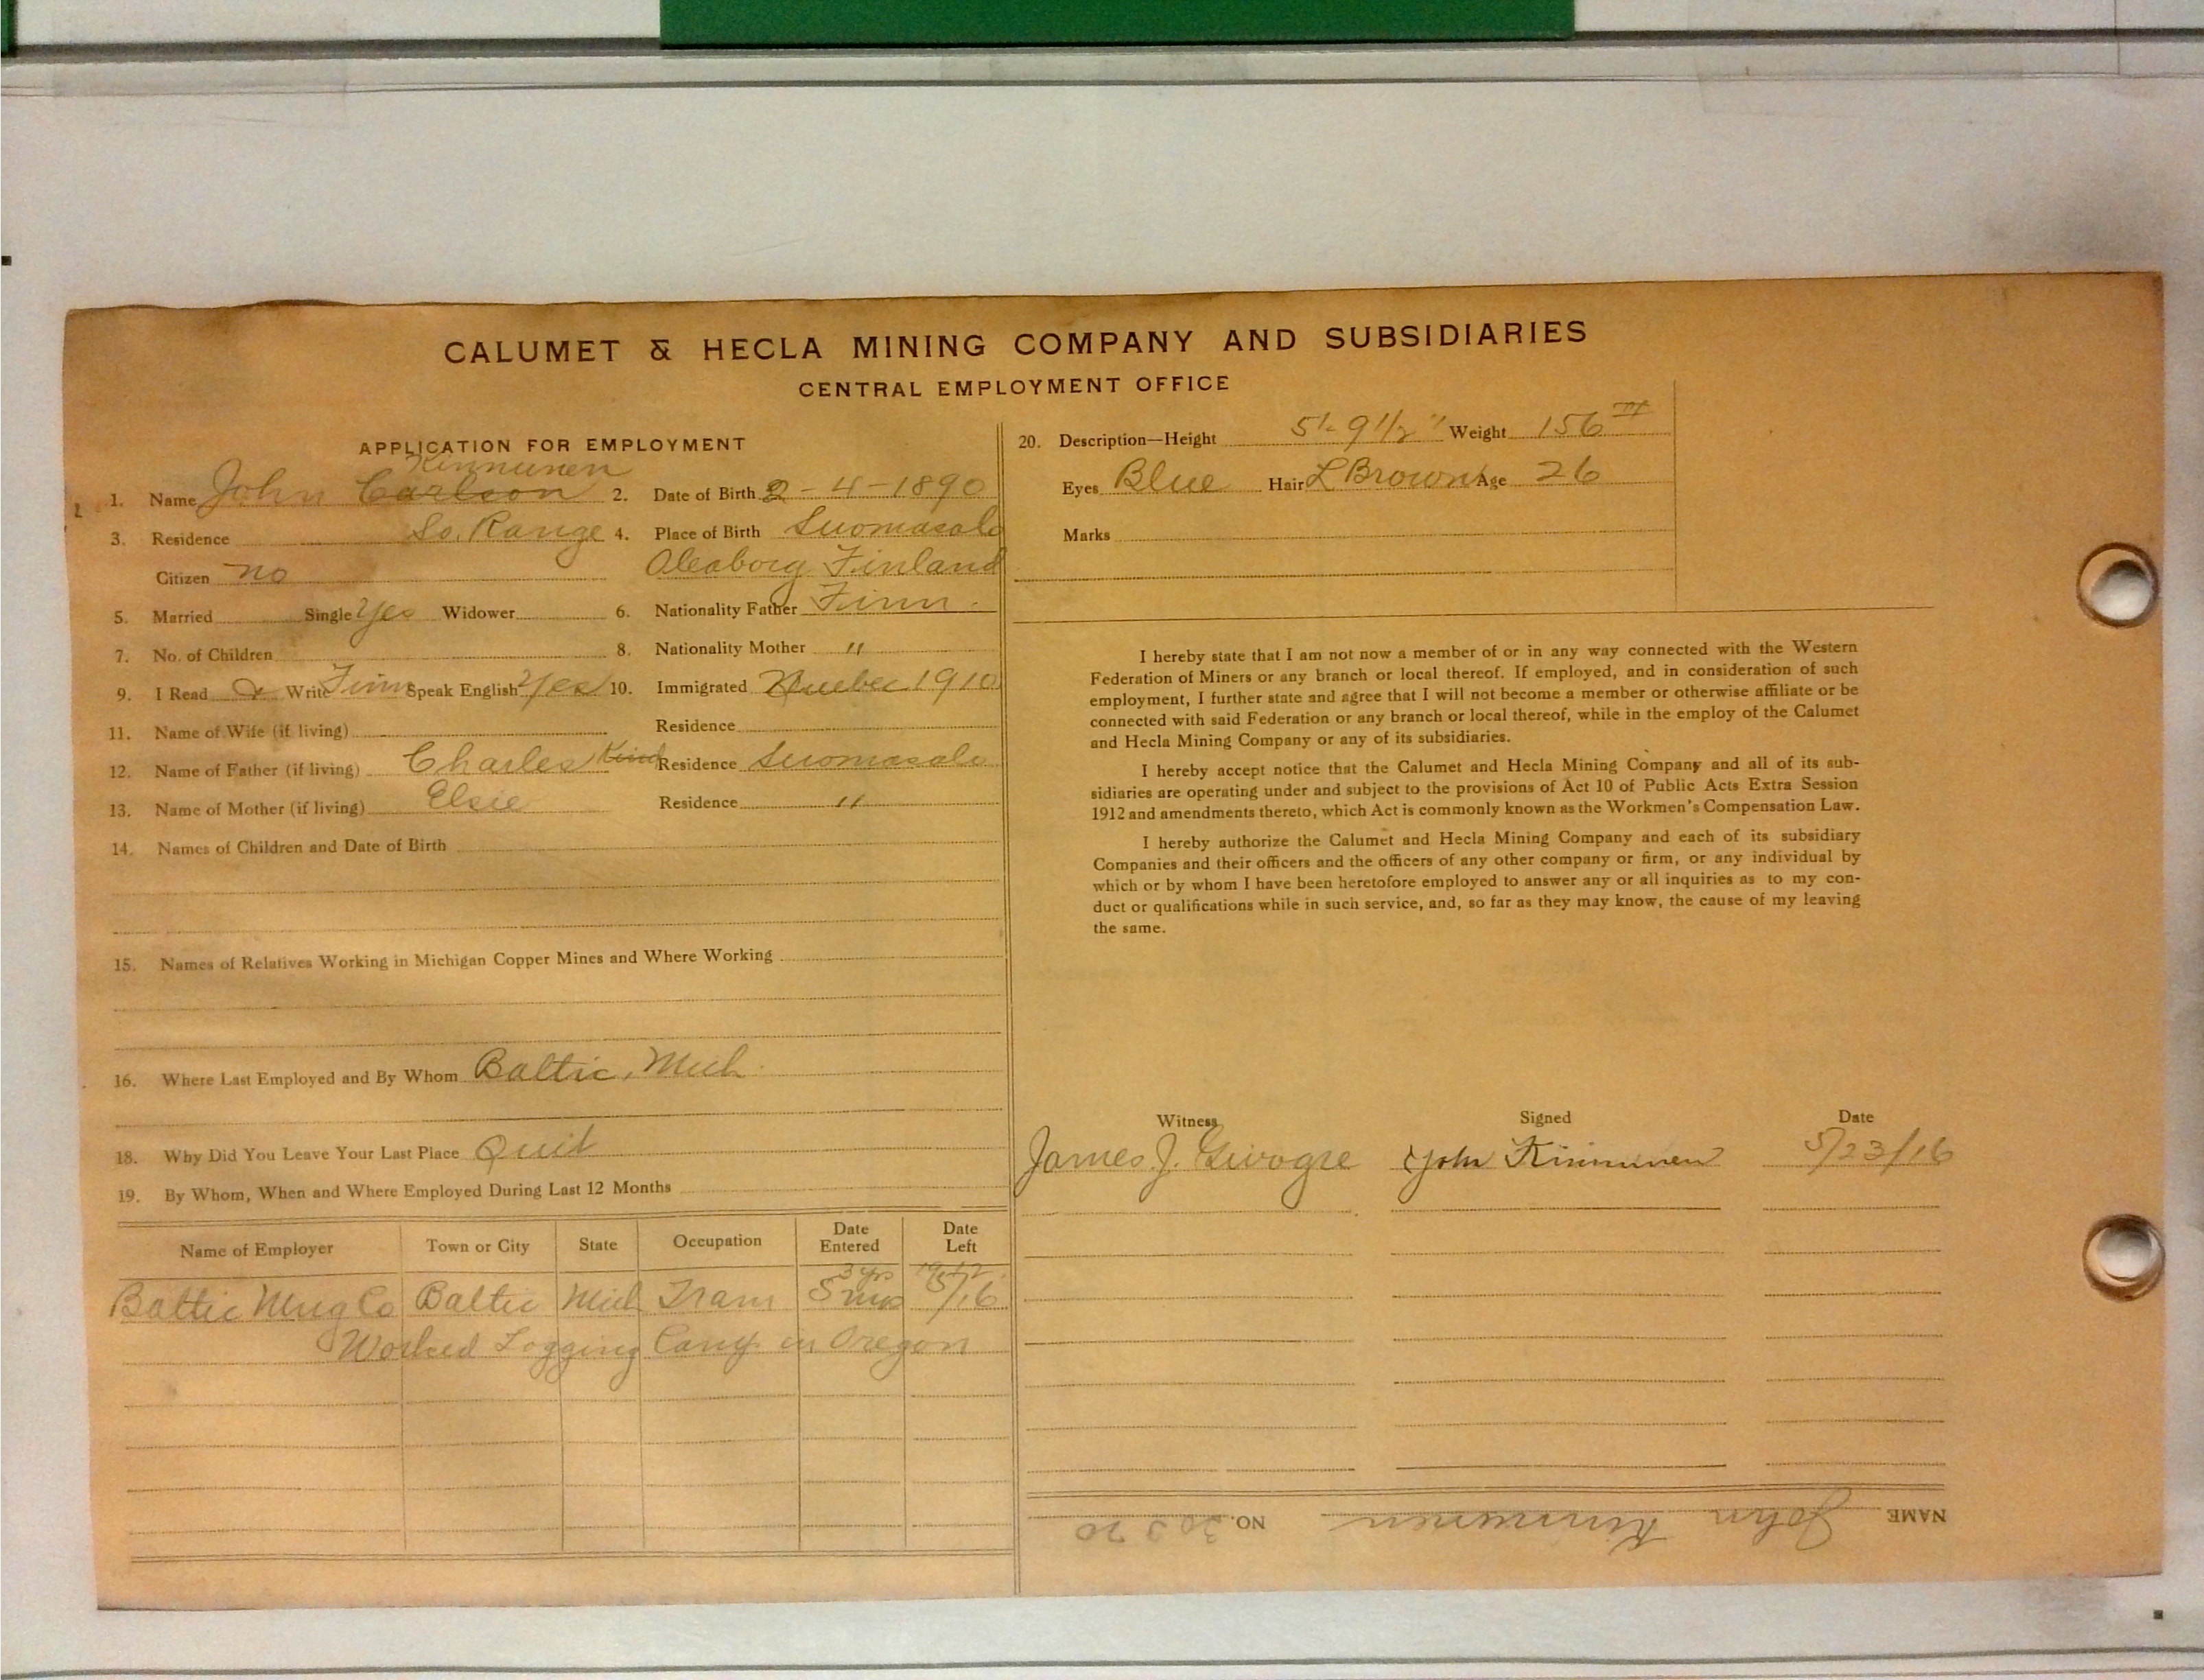 CALUMET & HECLA MINING COMPANY AND SUBSIDIARIES
CENTRAL EMPLOYMENT OFFICE
APPLICATION FOR EMPLOYMENT
Kinnunen
1. Name John Carlson 2. Date of Birth 2-4-1890
3. Residence So. Range 4. Place of Birth Suomasalo
Citizen no Oleaborg Finland
5. Married Single Yes Widower 6. Nationality Father Finn.
7. No. of Children 8. Nationality Mother "
9. I Read & Write Finn Speak English Yes 10. Immigrated 1910
11. Name of Wife (if living) Residence
12. Name of Father (if living) Charles Residence Suomasalo
13. Name of Mother (if living) Elsie Residence "
14. Names of Children and Date of Birth
15. Names of Relatives Working in Michigan Copper Mines and Where Working
16. Where Last Employed and By Whom Baltic, Mich.
18. Why Did You Leave Your Last Place Quit
19. By Whom, When and Where Employed During Last 12 Months
Name of Employer Town or City State Occupation Date Entered Date Left
Baltic Mng Co Baltic Mich Tram 3 yrs 5 mos 5/16
Worked Logging Camp in Oregon
20. Description—Height 5'- 9 1/2" Weight 156
Eyes Blue Hair L Brown Age 26
Marks
I hereby state that I am not now a member of or in any way connected with the Western
Federation of Miners or any branch or local thereof. If employed, and in consideration of such
employment, I further state and agree that I will not become a member or otherwise affiliate or be
connected with said Federation or any branch or local thereof, while in the employ of the Calumet
and Hecla Mining Company or any of its subsidiaries.
I hereby accept notice that the Calumet and Hecla Mining Company and all of its sub-
sidiaries are operating under and subject to the provisions of Act 10 of Public Acts Extra Session
1912 and amendments thereto, which Act is commonly known as the Workmen's Compensation Law.
I hereby authorize the Calumet and Hecla Mining Company and each of its subsidiary
Companies and their officers and the officers of any other company or firm, or any individual by
which or by whom I have been heretofore employed to answer any or all inquiries as to my con-
duct or qualifications while in such service, and, so far as they may know, the cause of my leaving
the same.
Witness Signed Date
James J. John Kinnunen 5/23/16
NAME John Kinnunen NO.